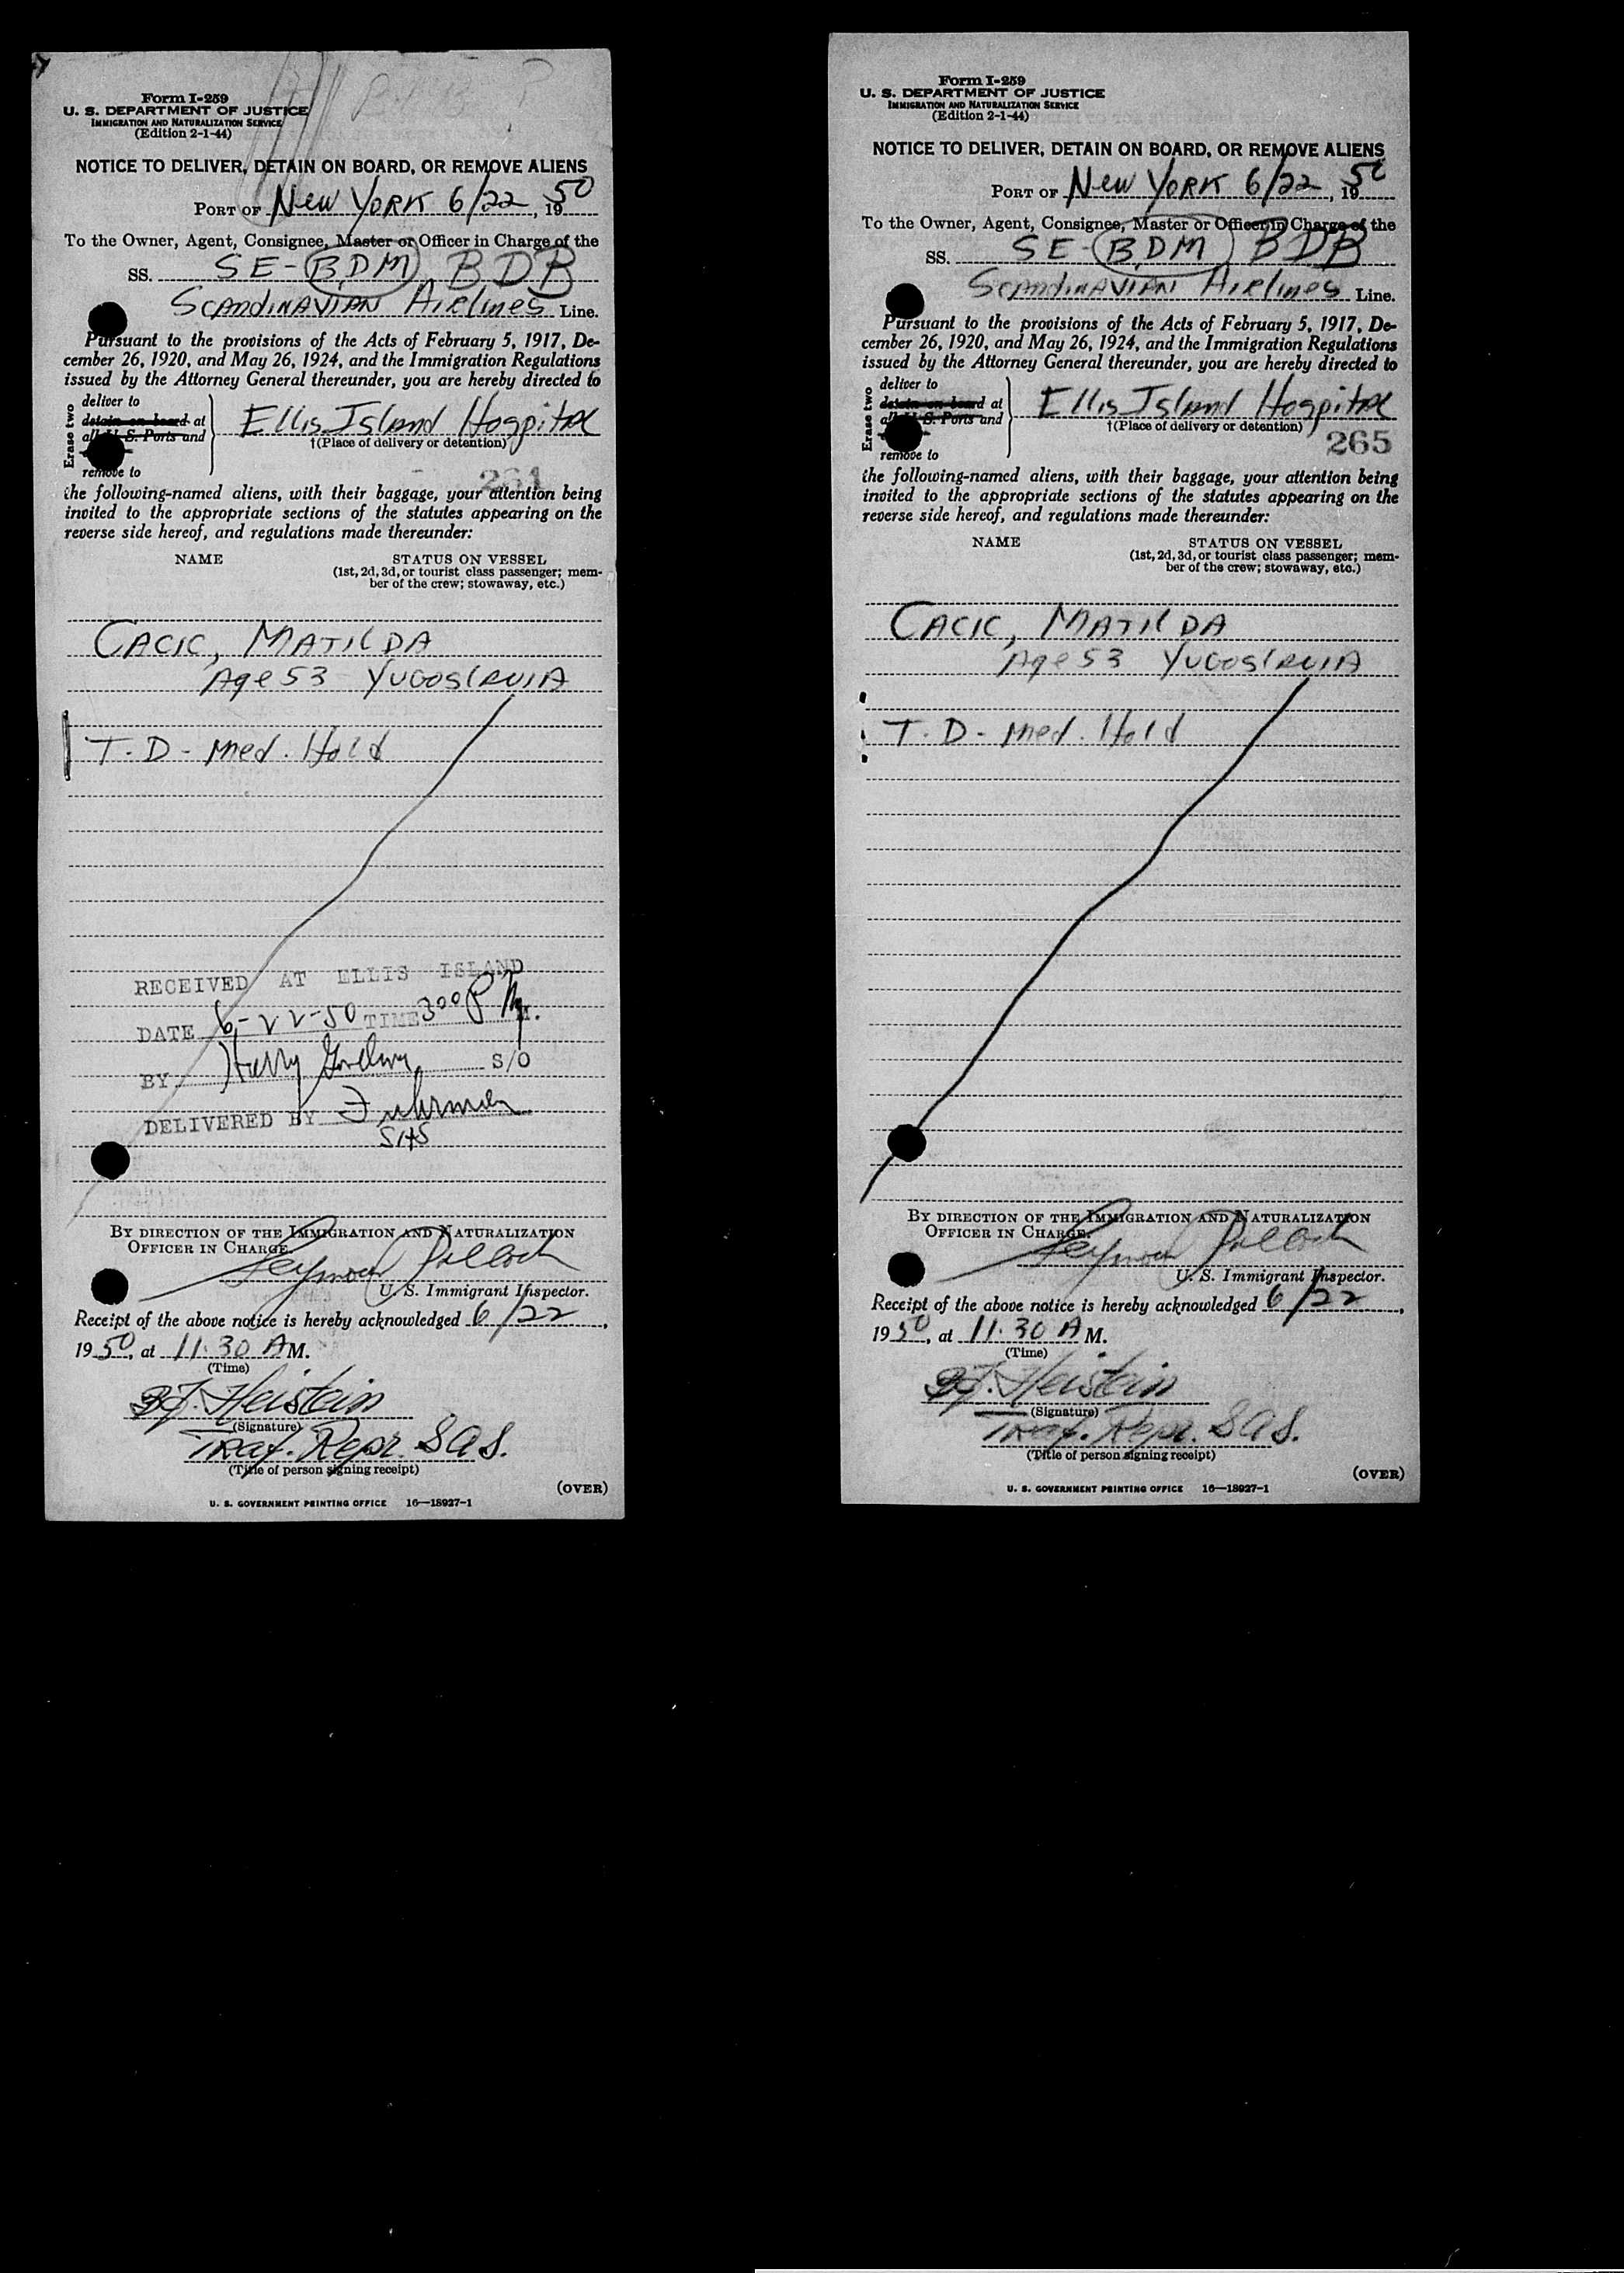 Form I-259
U. S. DEPARTMENT OF JUSTICE
IMMIGRATION AND NATURALIZATION SERVICE
(Edition 2-1-44)
NOTICE TO DELIVER, DETAIN ON BOARD, OR REMOVE ALIENS
PORT OF New YORK 6/22, 1950
To the Owner, Agent, Consignee, Master or Officer in Charge of the
SS. SE-BDM BDB
SCANDINAVIAN AIRlINES Line.
Pursuant to the provisions of the Acts of February 5, 1917, De-
cember 26, 1920, and May 26, 1924, and the Immigration Regulations
issued by the Attorney General thereunder, you are hereby directed to
Erase two
deliver to
detain on board at
all U. S. Ports and
remove to
Ellis Island Hospital
†(Place of delivery or detention)
261
the following-named aliens, with their baggage, your attention being
invited to the appropriate sections of the statutes appearing on the
reverse side hereof, and regulations made thereunder:
NAME STATUS ON VESSEL
(1st, 2d, 3d, or tourist class passenger; mem-
ber of the crew; stowaway, etc.)
CACIC, MATILDA
Age 53 YUGOSLAVIA
T.D- Med. Hold
RECEIVED AT ELLIS ISLAND
DATE 6-22-50 TIME 300 P M.
BY Harry S/O
DELIVERED BY Fuhrman
SAS
BY DIRECTION OF THE IMMIGRATION AND NATURALIZATION
OFFICER IN CHARGE.
Seymour Pollock
U. S. Immigrant Inspector.
Receipt of the above notice is hereby acknowledged 6/22,
1950, at 11.30 A M.
(Time)
Heistein
(Signature)
Traf. Repr. SAS.
(Title of person signing receipt)
(OVER)
U. S. GOVERNMENT PRINTING OFFICE 16—18927-1
Form I-259
U. S. DEPARTMENT OF JUSTICE
IMMIGRATION AND NATURALIZATION SERVICE
(Edition 2-1-44)
NOTICE TO DELIVER, DETAIN ON BOARD, OR REMOVE ALIENS
PORT OF New YORK 6/22, 1950
To the Owner, Agent, Consignee, Master or Officer in Charge of the
SS. SE-BDM BDB
SCANDINAVIAN AIRlINES Line.
Pursuant to the provisions of the Acts of February 5, 1917, De-
cember 26, 1920, and May 26, 1924, and the Immigration Regulations
issued by the Attorney General thereunder, you are hereby directed to
Erase two
deliver to
detain on board at
all U. S. Ports and
remove to
Ellis Island Hospital
†(Place of delivery or detention)
265
the following-named aliens, with their baggage, your attention being
invited to the appropriate sections of the statutes appearing on the
reverse side hereof, and regulations made thereunder:
NAME STATUS ON VESSEL
(1st, 2d, 3d, or tourist class passenger; mem-
ber of the crew; stowaway, etc.)
CACIC, MATILDA
Age 53 YUGOSLAVIA
T.D- Med. Hold
BY DIRECTION OF THE IMMIGRATION AND NATURALIZATION
OFFICER IN CHARGE.
Seymour Pollock
U. S. Immigrant Inspector.
Receipt of the above notice is hereby acknowledged 6/22,
1950, at 11.30 A M.
(Time)
Heistein
(Signature)
Traf. Repr. SAS.
(Title of person signing receipt)
(OVER)
U. S. GOVERNMENT PRINTING OFFICE 16—18927-1